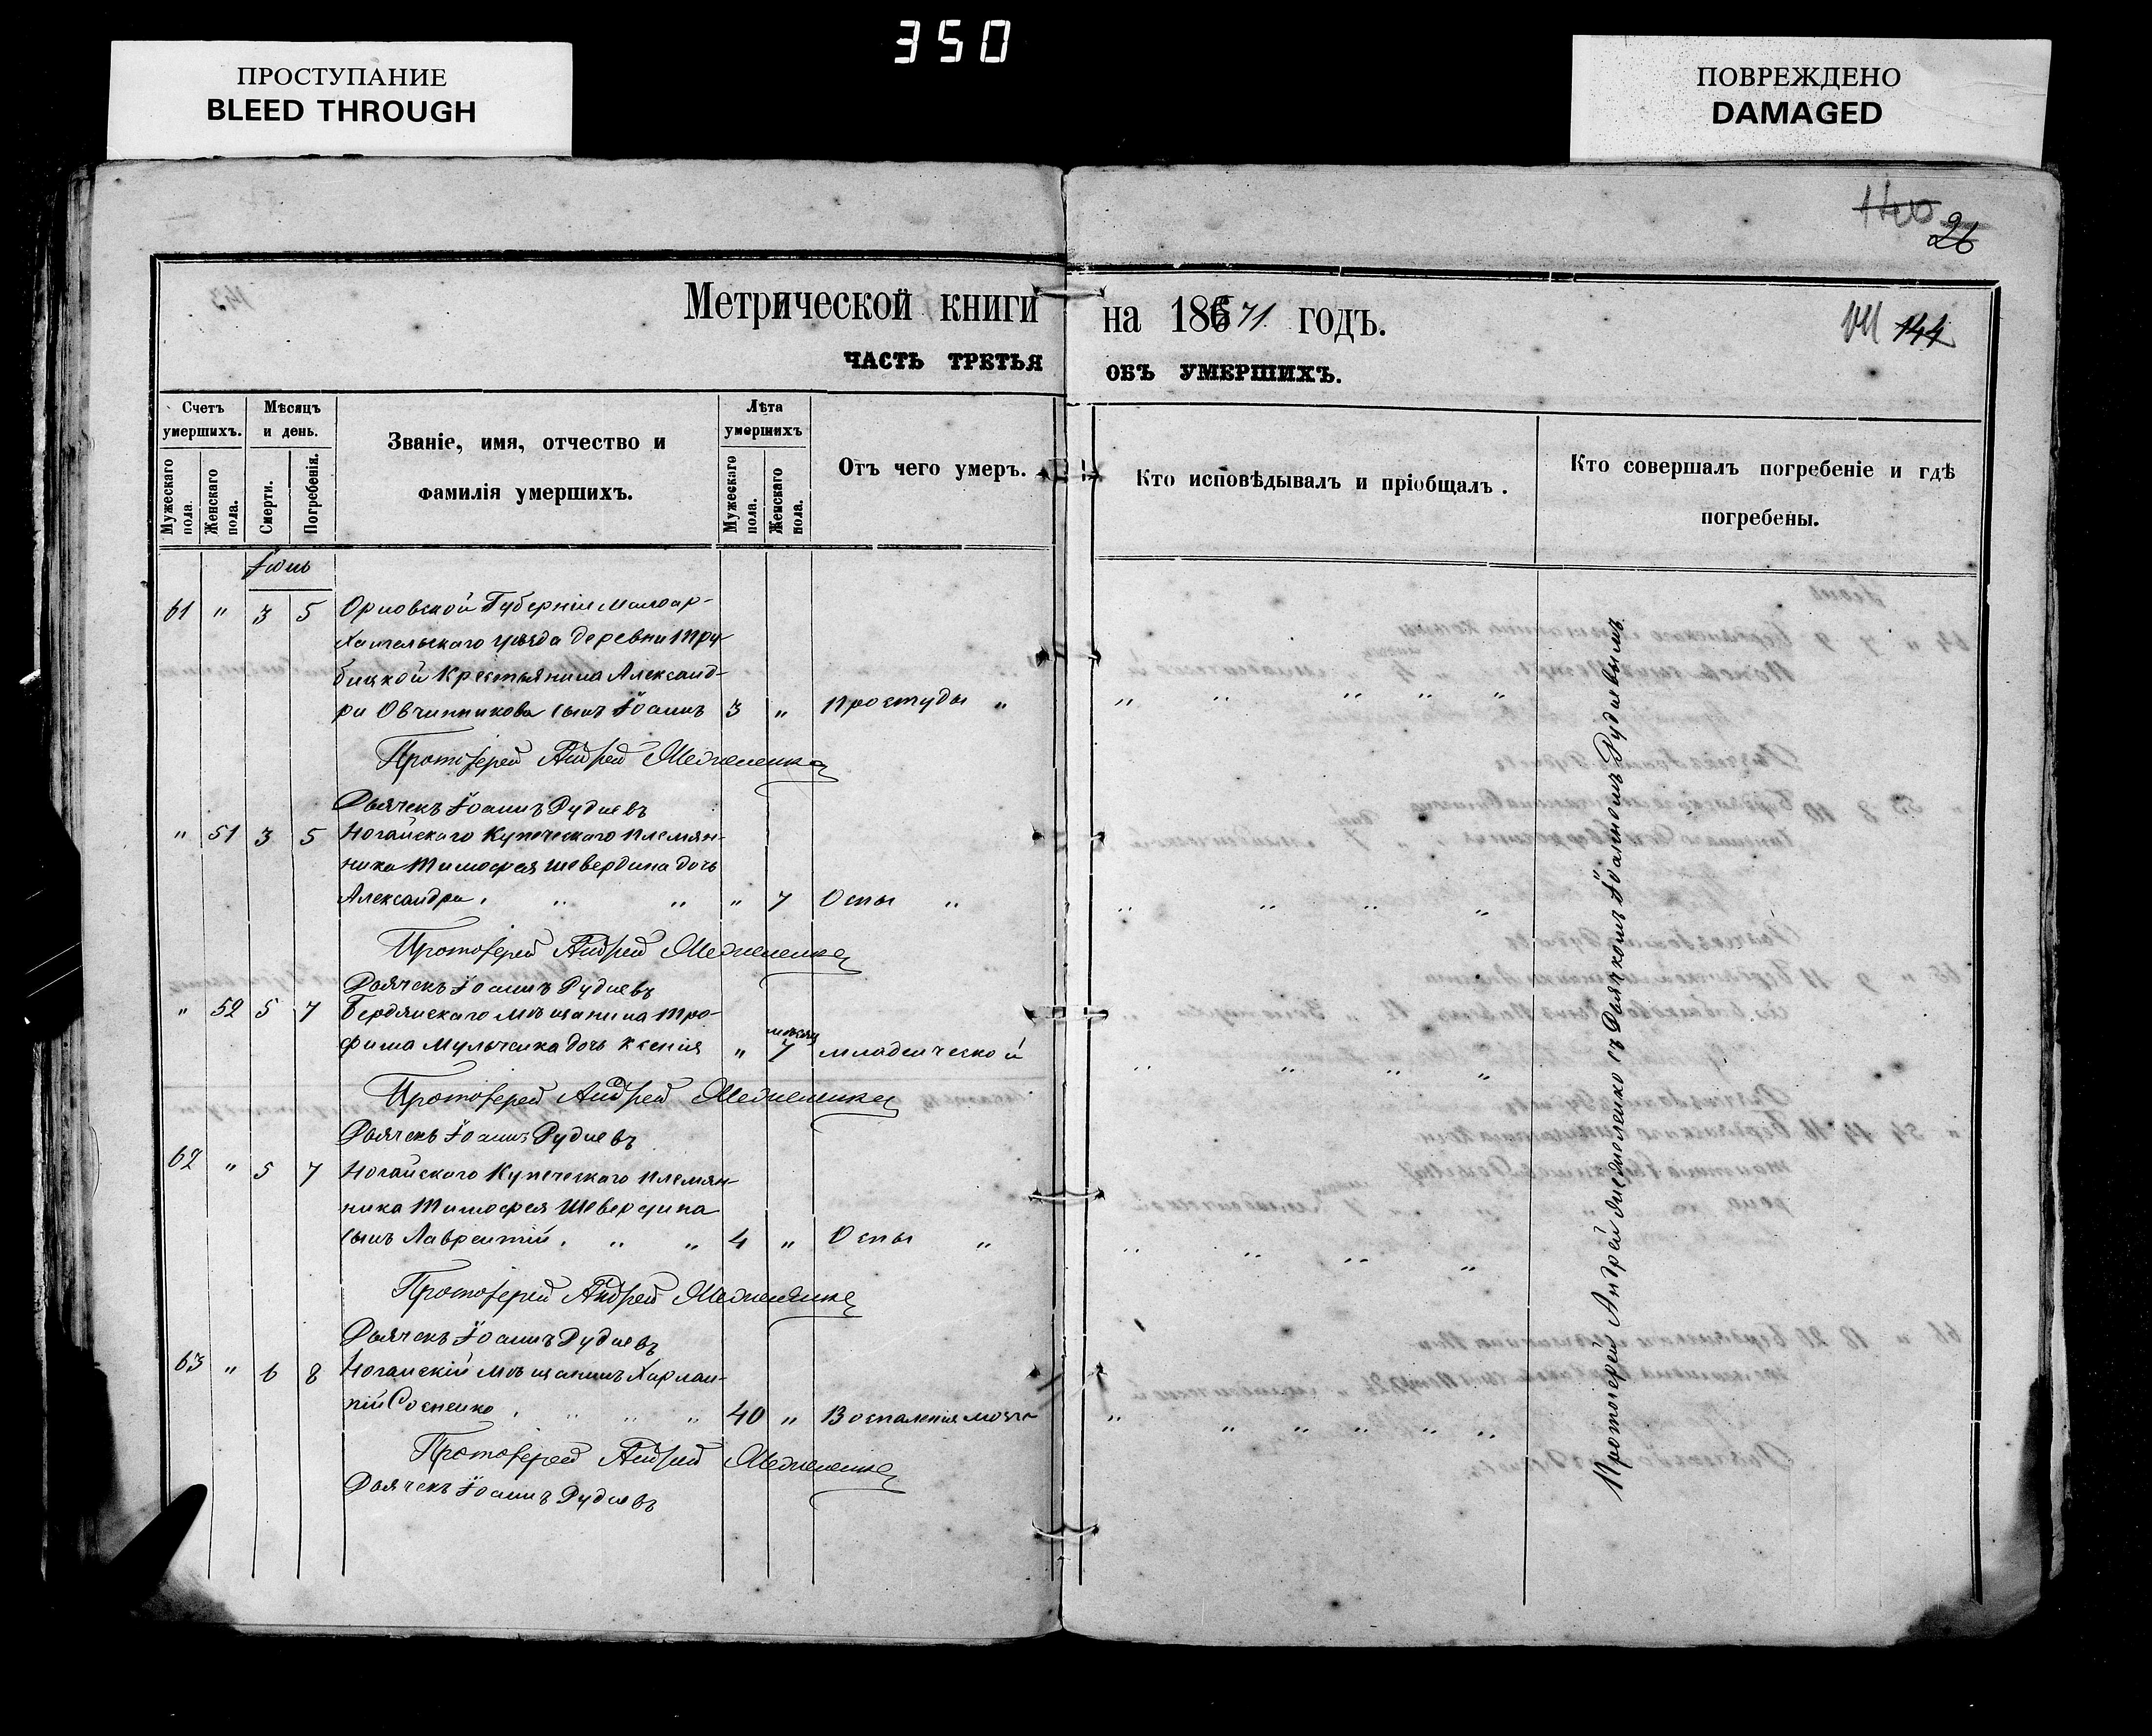 350
ПРОСТУПАНИЕ
BLEED THROUGH
ПОВРЕЖДЕНО
DAMAGED
140
26
Метрической книги на 1871 годъ.
144
ЧАСТЬ ТРЕТЬЯ ОБЪ УМЕРШИХЪ.
Счетъ умершихъ.
Мужескаго пола.
Женскаго пола.
Мѣсяцъ и день.
Смерти.
Погребенія.
Званіе, имя, отчество и
фамилія умершихъ.
Лѣта умершихъ
Мужескаго пола.
Женскаго пола.
Отъ чего умеръ.
Кто исповѣдывалъ и пріобщалъ.
Кто совершалъ погребеніе и гдѣ
погребены.
Іюнь
61 " 3 5 Орловской Губерніи Малоар-
хангельскаго уѣзда деревни Тру-
бицкой Крестьянина Александ-
ра Овчинникова сынъ Іоаннъ 3 " Простуды "
Протоіерей Андрей Медмеленко
Дьячекъ Іоаннъ Рудневъ
" 51 3 5 Ногайскаго Купеческаго племян-
ника Тимофея Шевердина дочь
Александра " " " 7 Оспы "
Протоіерей Андрей Медмеленко
Дьячекъ Іоаннъ Рудневъ
" 52 5 7 Бердянскаго мѣщанина Тро-
фима Мульченка дочь Ксенія " 7 мѣсяц младенческой
Протоіерей Андрей Медмеленко
Дьячекъ Іоаннъ Рудневъ
62 " 5 7 Ногайскаго Купеческаго племян-
ника Тимофея Шевердина
сынъ Лаврентій " " 4 " Оспы "
Протоіерей Андрей Медмеленко
Дьячекъ Іоаннъ Рудневъ
63 " 6 8 Ногайскій мѣщанинъ Харлам-
пій Сосненко " " " 40 " Воспаленія мозга
Протоіерей Андрей Медмеленко
Дьячекъ Іоаннъ Рудневъ
Протоіерей Андрей Медмеленко съ Дьячкомъ Іоанномъ Рудневымъ